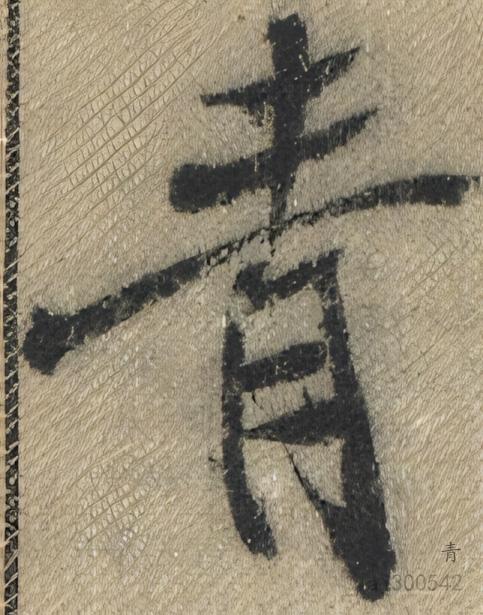 青
青
300542